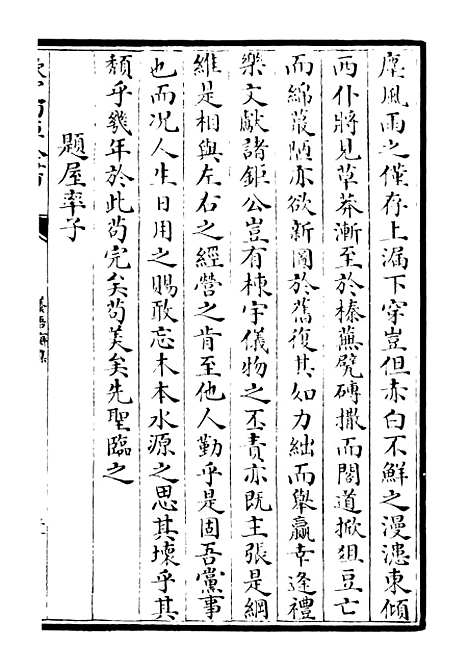 塵風雨之僅存上漏下穿豈但赤白不鮮之漫漶東傾
西仆將見草莽漸至於榛蕪甓磚撒而閣道掀俎豆亡
而綿蕞陋亦欲新圖於舊復其如力絀而舉贏幸逢禮
樂文獻諸鉅公豈有棟宇儀物之丕責亦既主張是綱
維是相與左右之經營之肯至他人勤乎是固吾黨事
也而况人生日用之賜敢忘木本水源之思其壞乎其
頽乎幾年於此苟完矣苟美矣先聖臨之
題屋率子